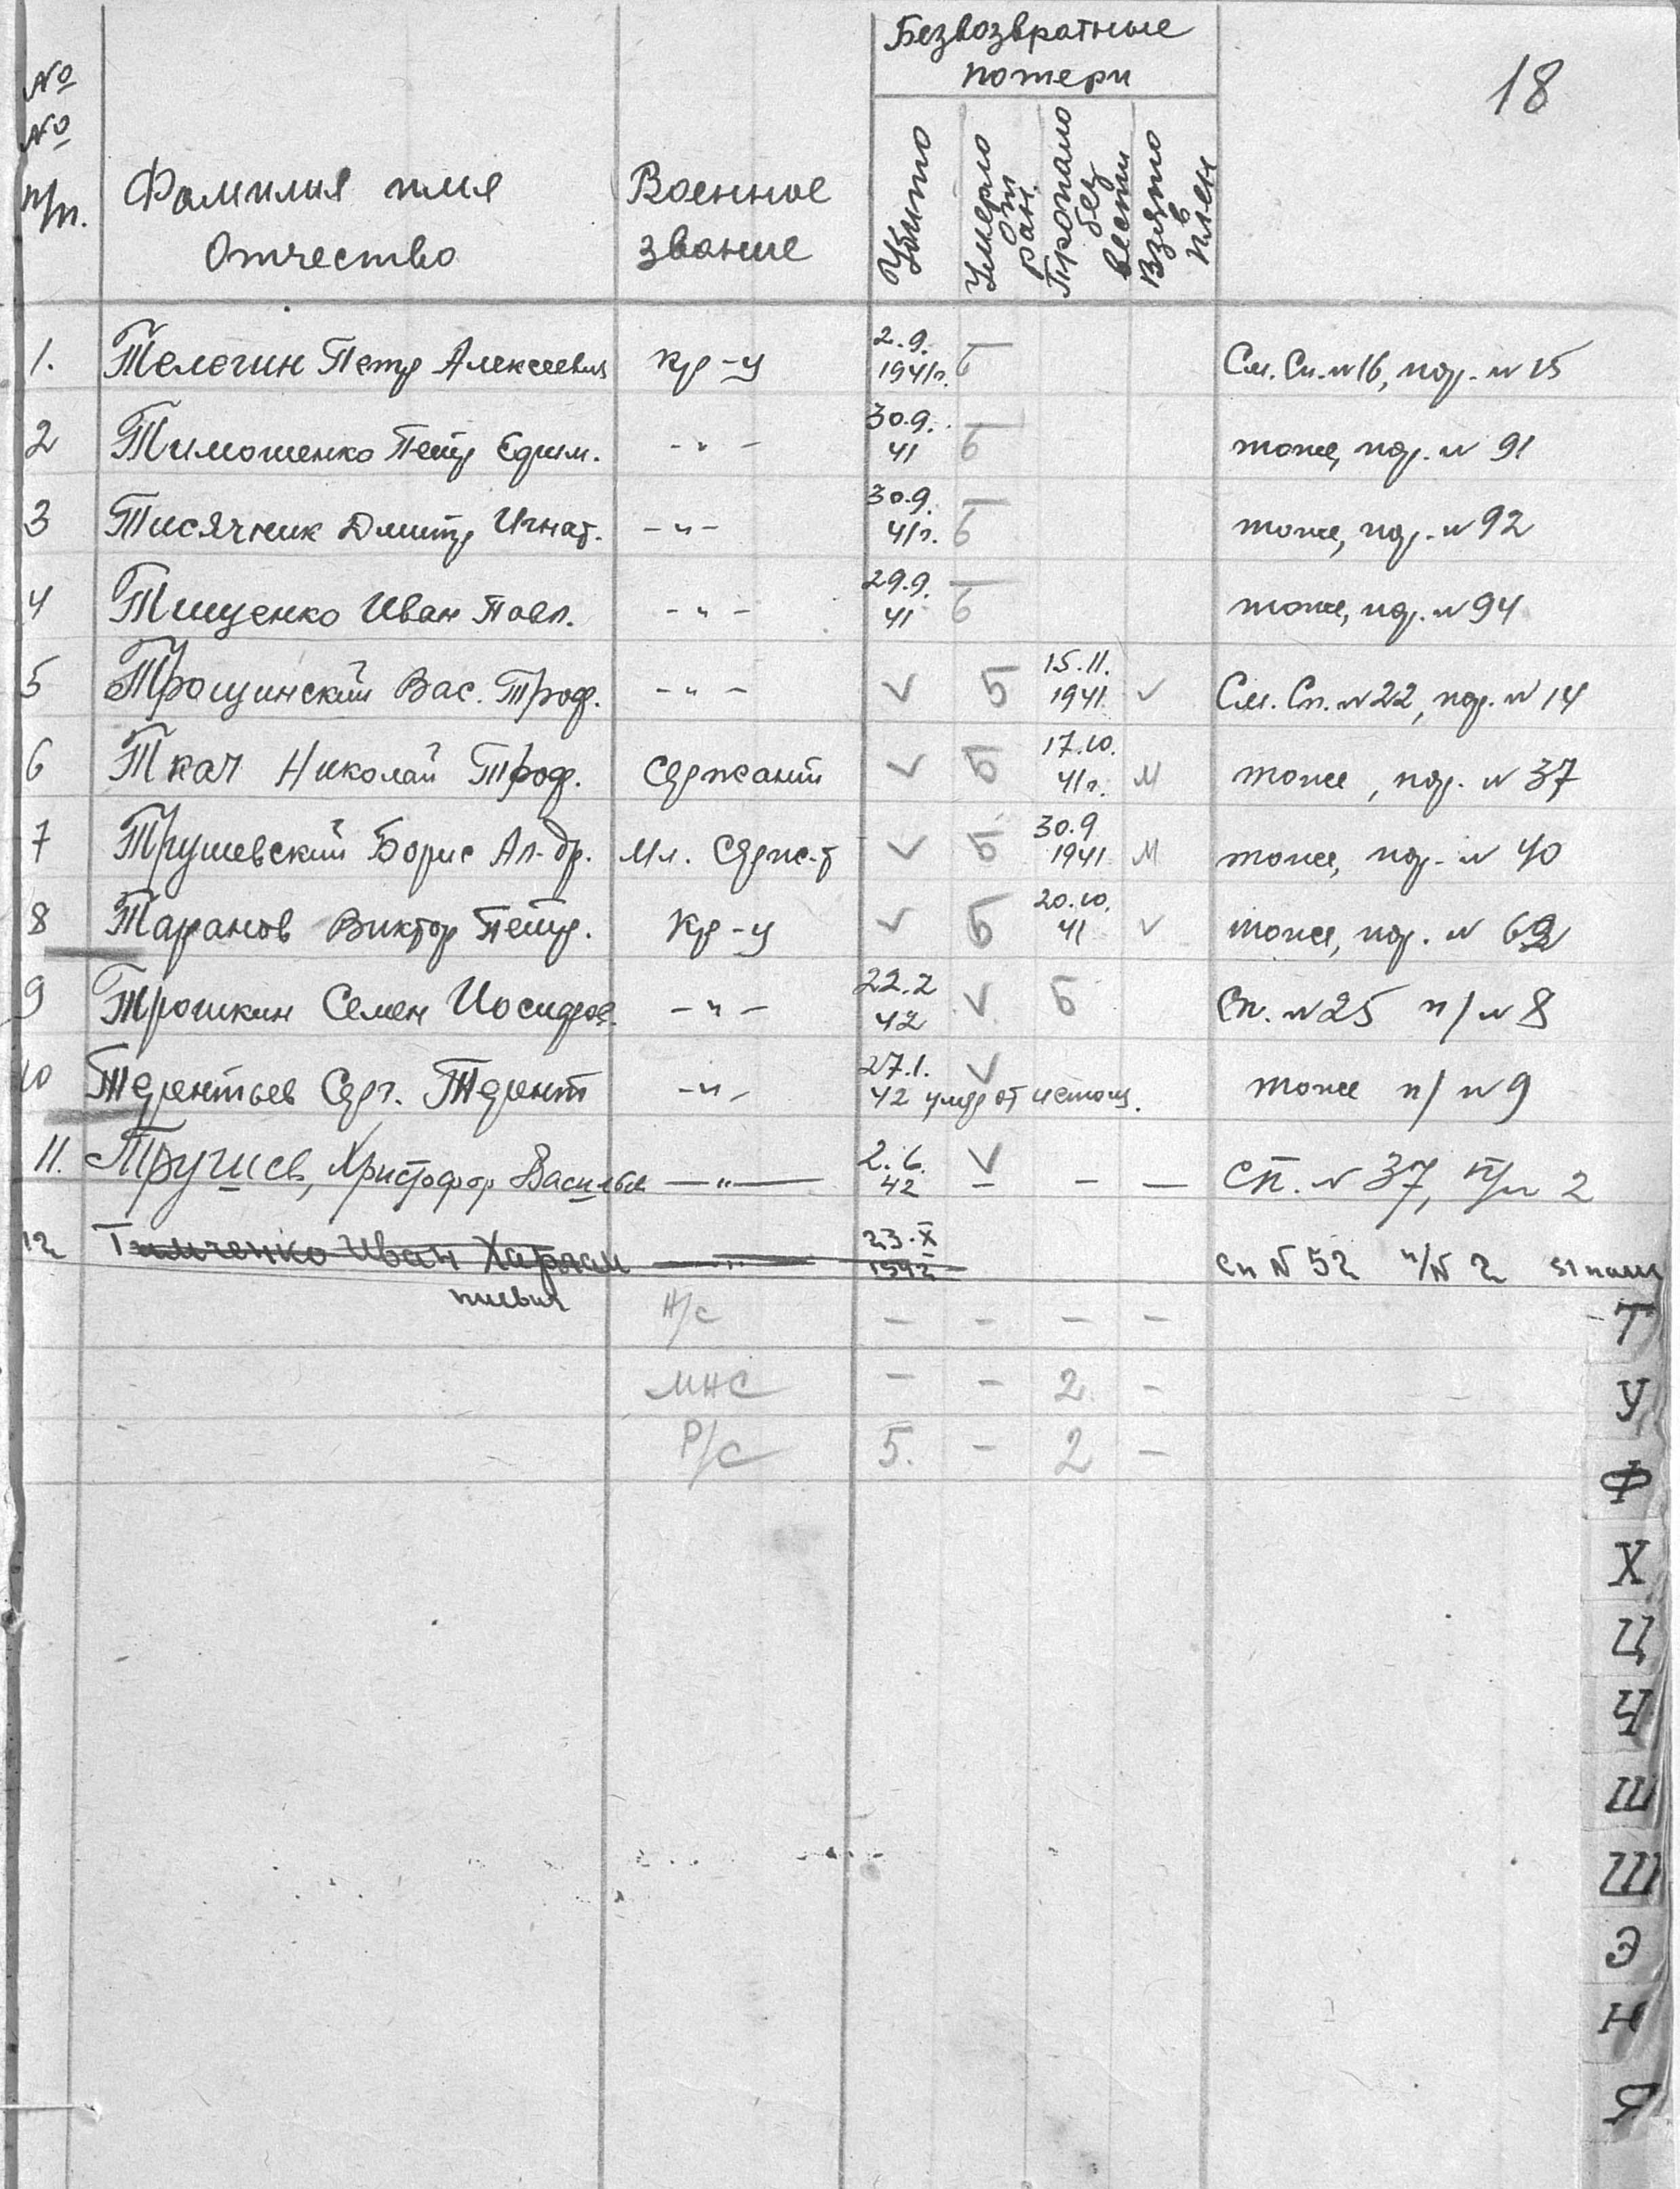 18
№ № п/п. Фамилия имя Отчество Военное звание Безвозвратные потери
Убито Умерло от ран. Пропало без вести Взято в плен
1. Телегин Петр Алексеевич кр-ц 2.9. 1941г. Б См. Сп. №16, пор. №15
2 Тимошенко Петр Ефим. -"- 30.9. 41 Б тоже, пор. № 91
3 Тисячник Дмитр Игнат. -"- 30.9. 41г. Б тоже, пор. №92
4 Тищенко Иван Павл. -"- 29.9. 41 Б тоже, пор. №94
5 Трощинский Вас. Троф. -"- V Б 15.11. 1941 V См. Сп. №22, пор. № 14
6 Ткач Николай Троф. Сержант V Б 17.10. 41г. М тоже, пор. № 37
7 Трушевский Борис Ал-др. Мл. Серж-т V Б 30.9 1941 М тоже, пор. № 40
8 Таранов Виктор Петр. кр-ц V Б 20.10. 41 V тоже, пор. №
9 Трошкин Семен Иосифов. -"- 22.2 42 V Б Сп. №25 п/№8
10 Терентьев Серг. Терент -"- 27.1. 42 умер от истощ. V тоже п/№9
11. Тручиев, Христофор Васильев -"- 2.6. 42 V - - - СП. №37, п/№ 2
12 Тимченко Иван Харлам пиевич -"- 23.X 1942 сп №52 п/№ 2
Н/С - - - -
МНС - - 2 -
Р/С 5. - 2 -
Т
У
Ф
Х
Ц
Ч
Ш
Щ
Э
Н
Я